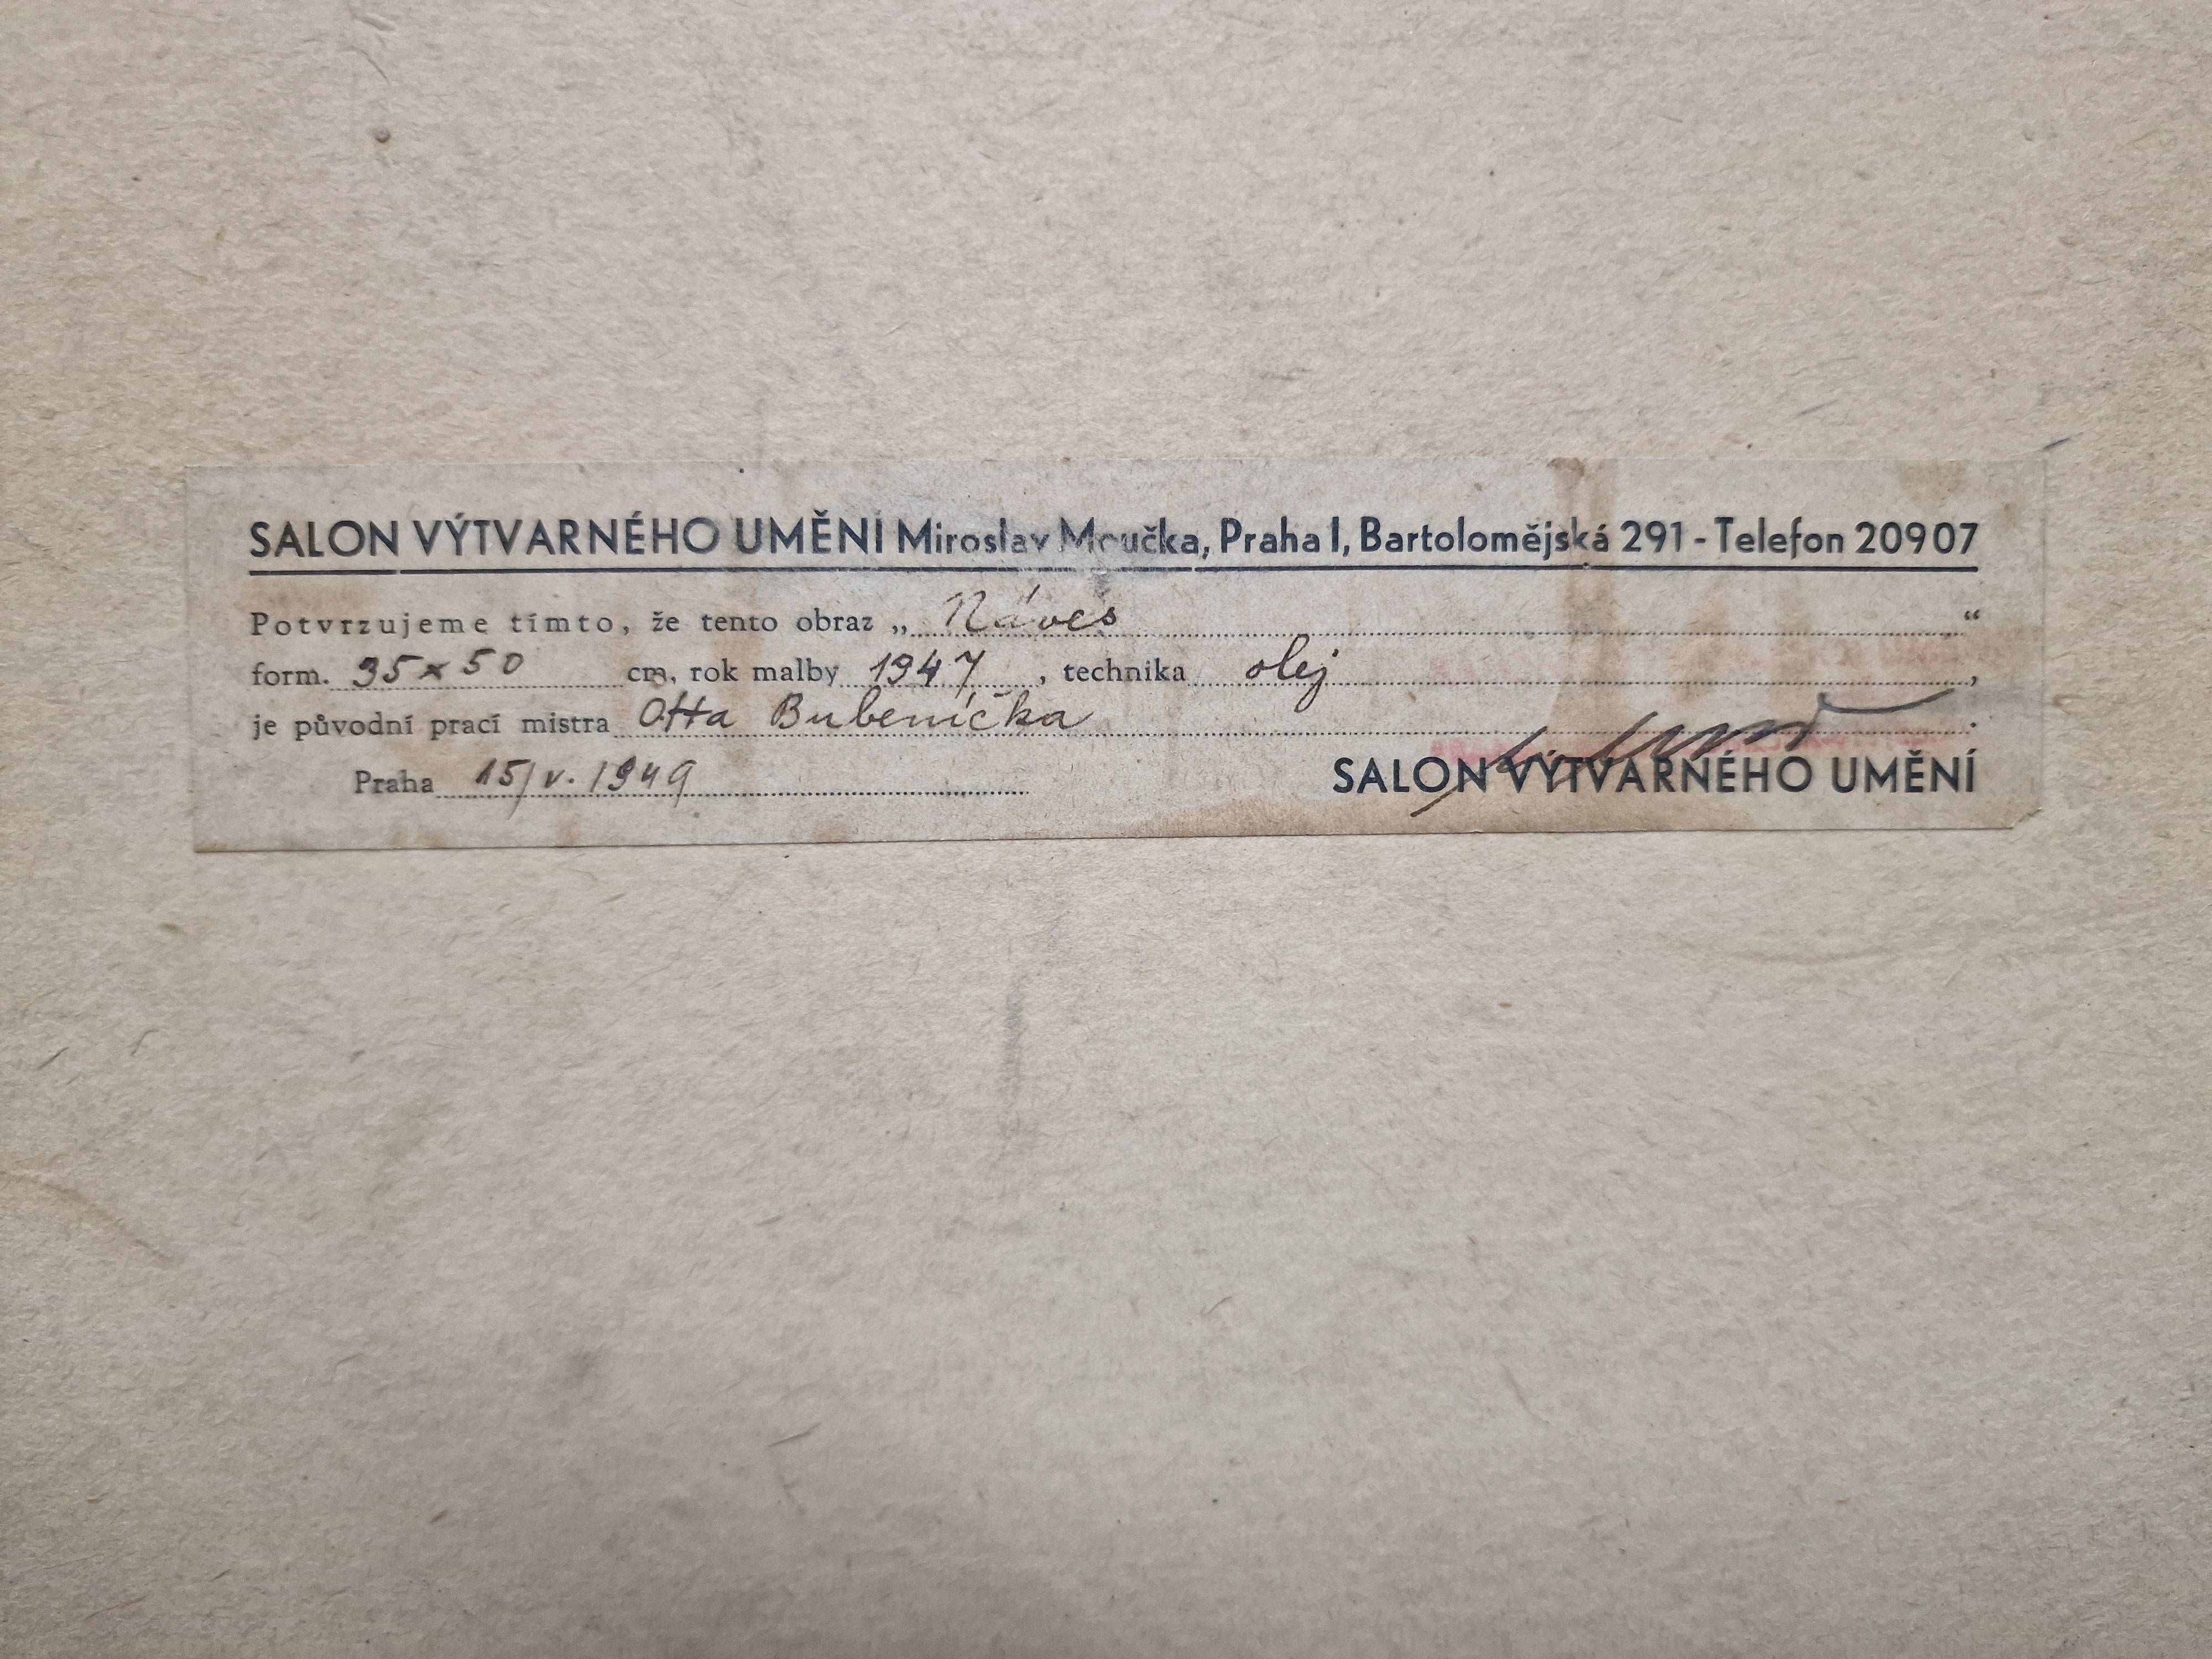 SALON VÝTVARNÉHO UMĚNÍ Miroslav Moučka, Praha I, Bartolomějská 291 - Telefon 20907
Potvrzujeme tímto, že tento obraz „ Náves “
form. 35 x 50 cm, rok malby 1947, technika olej,
je původní prací mistra Otta Bubeníčka.
Praha 15/V. 1949
SALON VÝTVARNÉHO UMĚNÍ